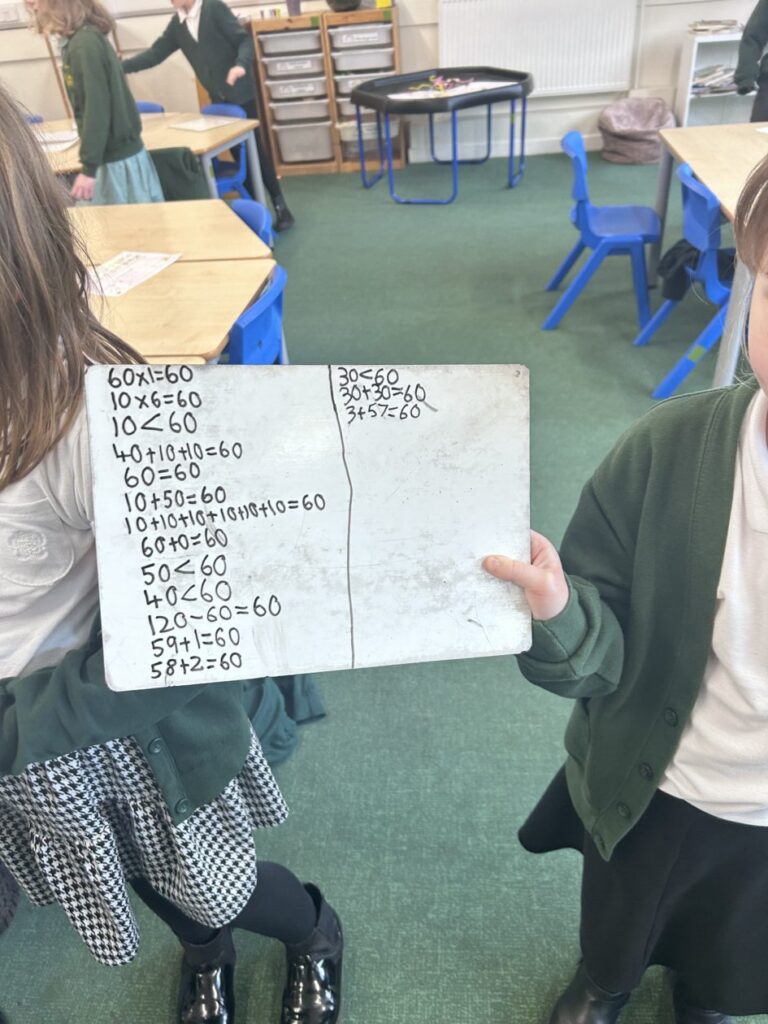 60x1=60
10x6=60
10<60
40+10+10=60
60=60
10+50=60
10+10+10+10+10+10=60
60+0=60
50<60
40<60
120-60=60
59+1=60
58+2=60
30<60
30+30=60
3+57=60